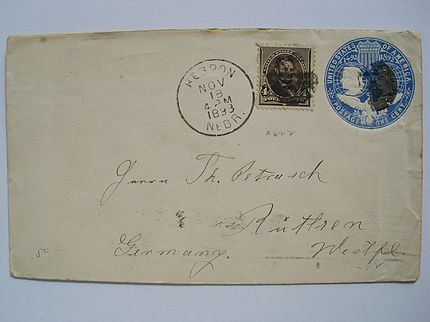 HEBRON
NOV
18
4 PM
1893
NEBR.
4 4
UNITED STATES OF AMERICA
1892
POSTAGE ONE CENT
Herrn Th. Petrasch
Rüthen
Germany. Westfl.
50